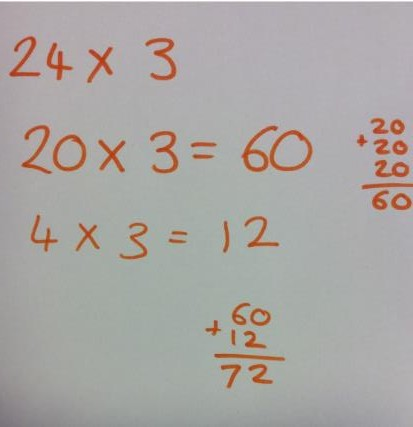 24 × 3
20 × 3 = 60
20
+ 20
20
60
4 × 3 = 12
60
+ 12
72